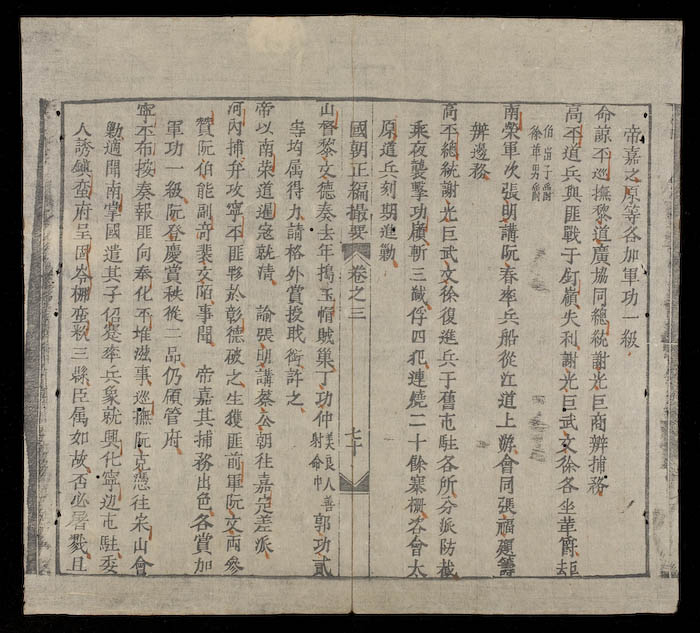 帝嘉之原等各加軍功一級
命諒平巡撫黎道廣協同總統謝光巨商辨捕務
高平道兵與匪戰于釘嶺失利謝光巨武文徐各坐革爵
徐革男爵
南榮軍次張明講阮春率兵船從江道上游會同張福
辨邊務
高平總統謝光巨武文徐復進兵于舊屯駐各所分派防截
乘夜襲擊功嶺斬三馘俘四犯連燒二十餘寨柵各會太
原道兵刻期進勦
國朝正編撮要 卷之三 七十
山督黎文德奏去年搗玉帽賊巢丁功仲美良人善射命中郭功貳
等均属得力請格外賞授職銜許之
帝以南荣道邐寇就清 諭張明講蔡公朝往嘉定差派
河內捕弁攻寧平匪夥於彰德破之生獲匪前軍阮文兩參
贊阮伯能副奇裴文陌事聞 帝嘉其捕務出色各賞加
軍功一級阮登慶賞秩從二品仍領管府
寧平布按奏報匪向奉化不堆滋事巡撫阮克憑往朱山會
勦適聞南掌國遣其子紹率兵象就興化寧边屯駐委
人誘鎮蛮府呈固岑柵蛮新三縣臣属如故否必屠戮且